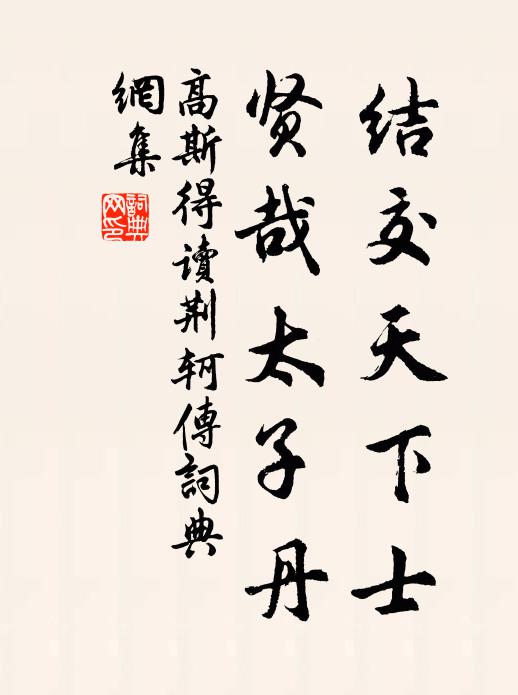 结交天下士
贤哉太子丹
高斯得讀荆轲傳詞典
網集
詞典
网印